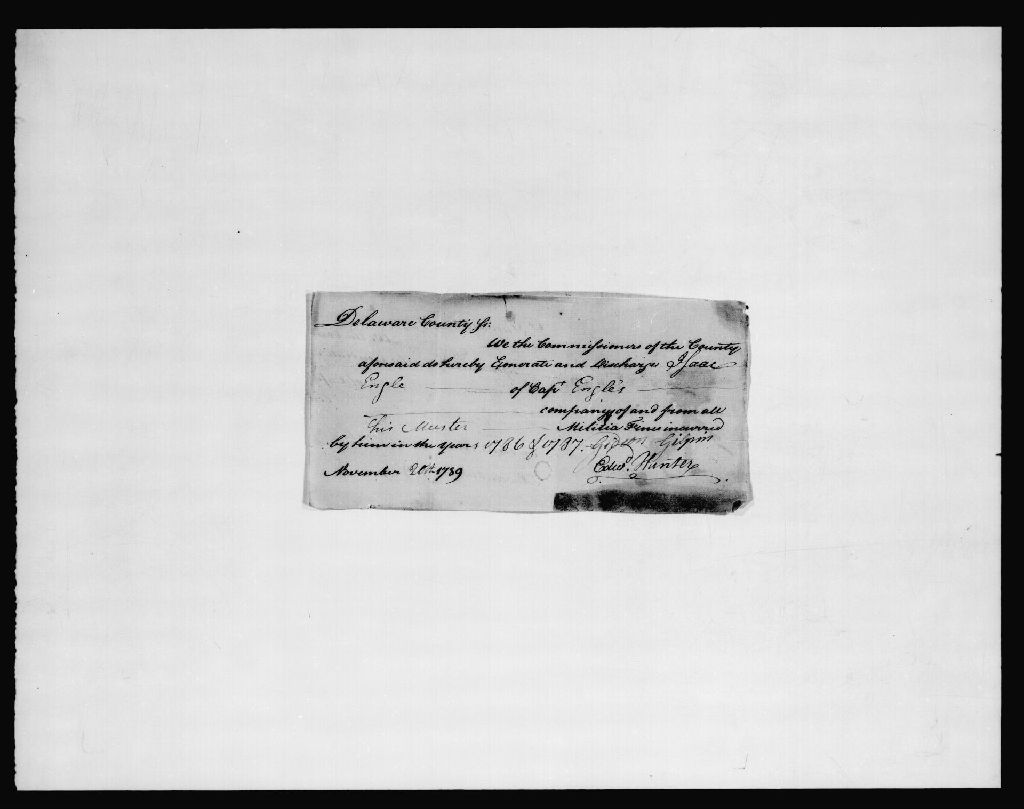 Delaware County Ss.
We the Commissioners of the County
aforesaid do hereby Exonerate and Discharge Isaac
Engle of Capt Engle's
company of and from all
this Muster Militia Fines incurred
by him in the years 1786 & 1787.
November 20th 1789 Edwd. Hunter